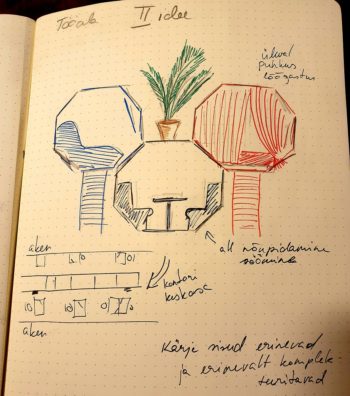 Tööala II idee
üleval
puhkus
lõõgastus
all nõupidamine
söömine
aken
kontori
keskosa
aken
Kärje sisud erinevad
ja erinevalt komplek-
teeritavad